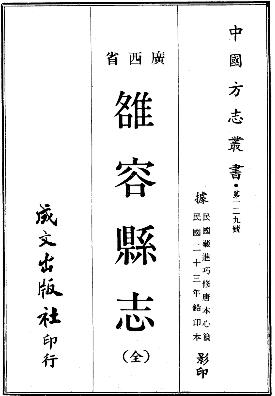 中國方志叢書·第一二九號
據民國臧進巧修唐本心纂
民國二十三年鉛印本影印
廣西省
雒容縣志
(全)
成文出版社印行